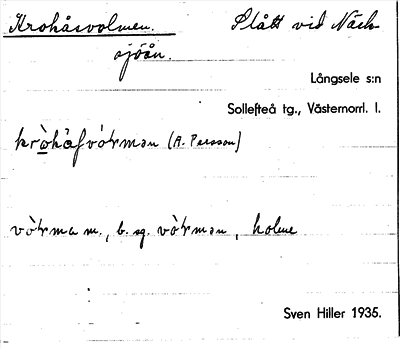 Krohåsvolmen. Slått vid Näck-
sjöån.
Långsele s:n
Sollefteå tg., Västernorrl. l.
kròhåfvòrman (A. Persson)
vòrma m., b. sg. vòrman, holme
Sven Hiller 1935.